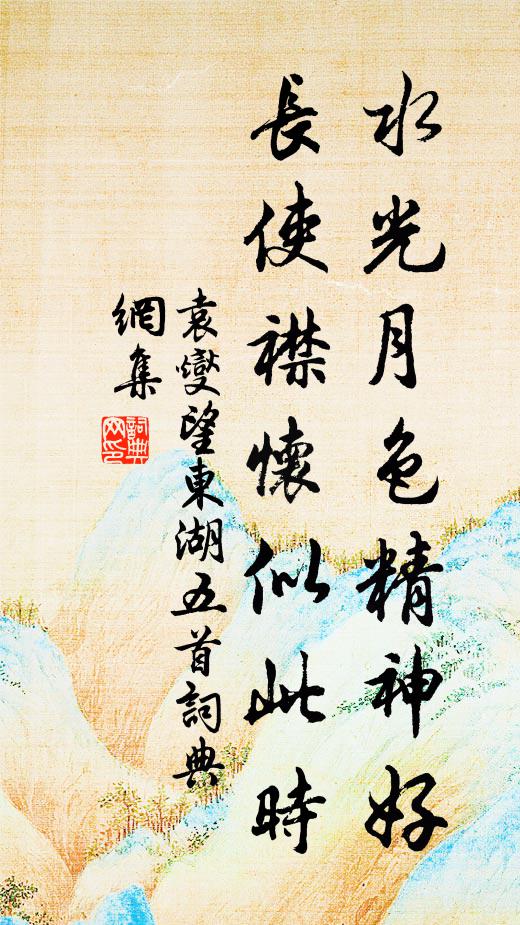 水光月色精神好
長使襟懷似此時
袁燮望東湖五首詞典
網集
詞典
网印